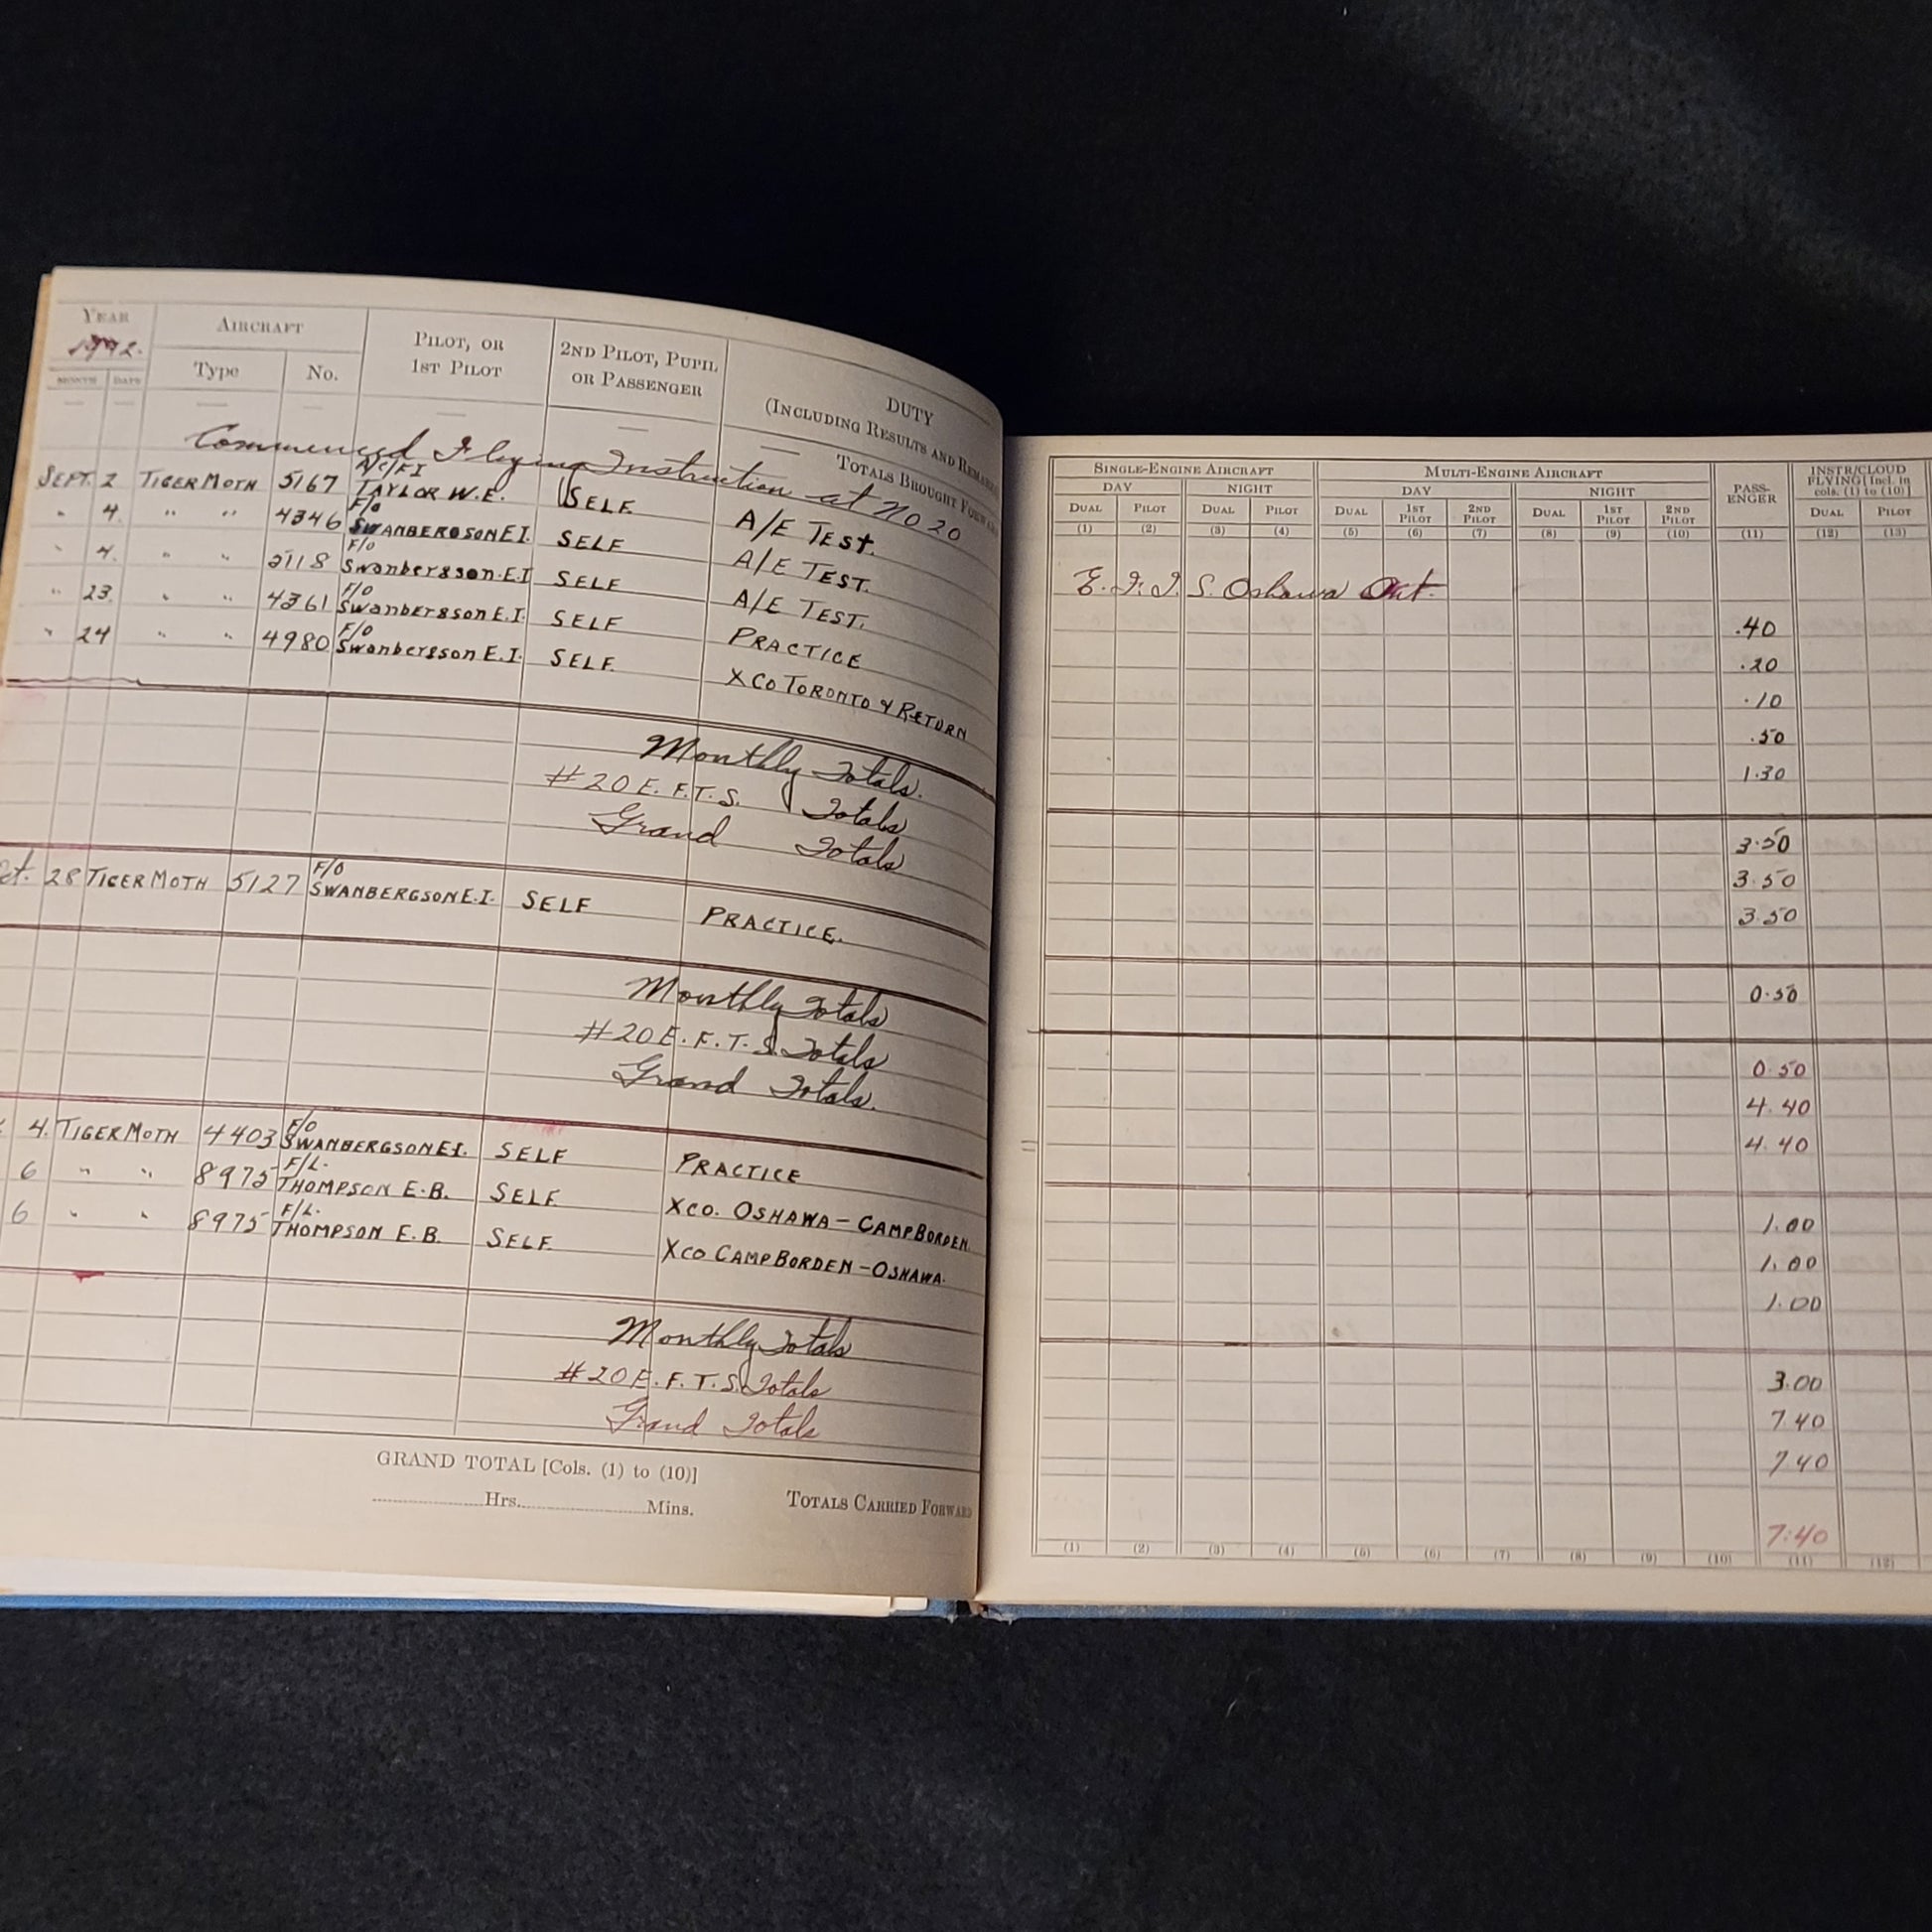 YEAR AIRCRAFT PILOT, OR 1ST PILOT 2ND PILOT, PUPIL OR PASSENGER DUTY
1942. Type No. (INCLUDING RESULTS AND REMARKS
MONTH DATE
TOTALS BROUGHT FORWARD
Commenced Flying Instruction at No 20
SEPT. 2 TIGER MOTH 5167 A/C/FI TAYLOR W.E. SELF A/E TEST.
" 4. " " 4346 F/O SWANBERGSON E.I. SELF A/E TEST.
" 4. " " 5118 F/O Swanbergson E.I SELF A/E TEST.
" 23. " " 4361 F/O Swanbergson E.I. SELF PRACTICE
" 24 " " 4980 F/O Swanbergson E.I. SELF. X CO TORONTO & RETURN
Monthly Totals.
#20 E.F.T.S. Totals
Grand Totals
Oct. 28 TIGER MOTH 5127 F/O SWANBERGSON E.I. SELF PRACTICE.
Monthly Totals
#20 E.F.T.S. Totals
Grand Totals.
4. TIGER MOTH 4403 F/O SWANBERGSON E.I. SELF PRACTICE
6 " " 8975 F/L. THOMPSON E.B. SELF. XCO. OSHAWA – CAMP BORDEN.
6 " " 8975 F/L. THOMPSON E.B. SELF. XCO CAMP BORDEN – OSHAWA.
Monthly Totals
#20 E.F.T.S. Totals
Grand Totals
GRAND TOTAL [Cols. (1) to (10)]
Hrs. Mins. TOTALS CARRIED FORWARD
SINGLE-ENGINE AIRCRAFT MULTI-ENGINE AIRCRAFT PASS-ENGER INSTR/CLOUD FLYING [Incl. in cols. (1) to (10)]
DAY NIGHT DAY NIGHT
DUAL PILOT DUAL PILOT DUAL 1ST PILOT 2ND PILOT DUAL 1ST PILOT 2ND PILOT DUAL PILOT
(1) (2) (3) (4) (5) (6) (7) (8) (9) (10) (11) (12) (13)
E.F.T.S. Oshawa Ont.
.40
.20
.10
.50
1.30
3.50
3.50
3.50
0.50
0.50
4.40
4.40
1.00
1.00
1.00
3.00
7.40
7.40
7:40
(1) (2) (3) (4) (5) (6) (7) (8) (9) (10) (11) (12)